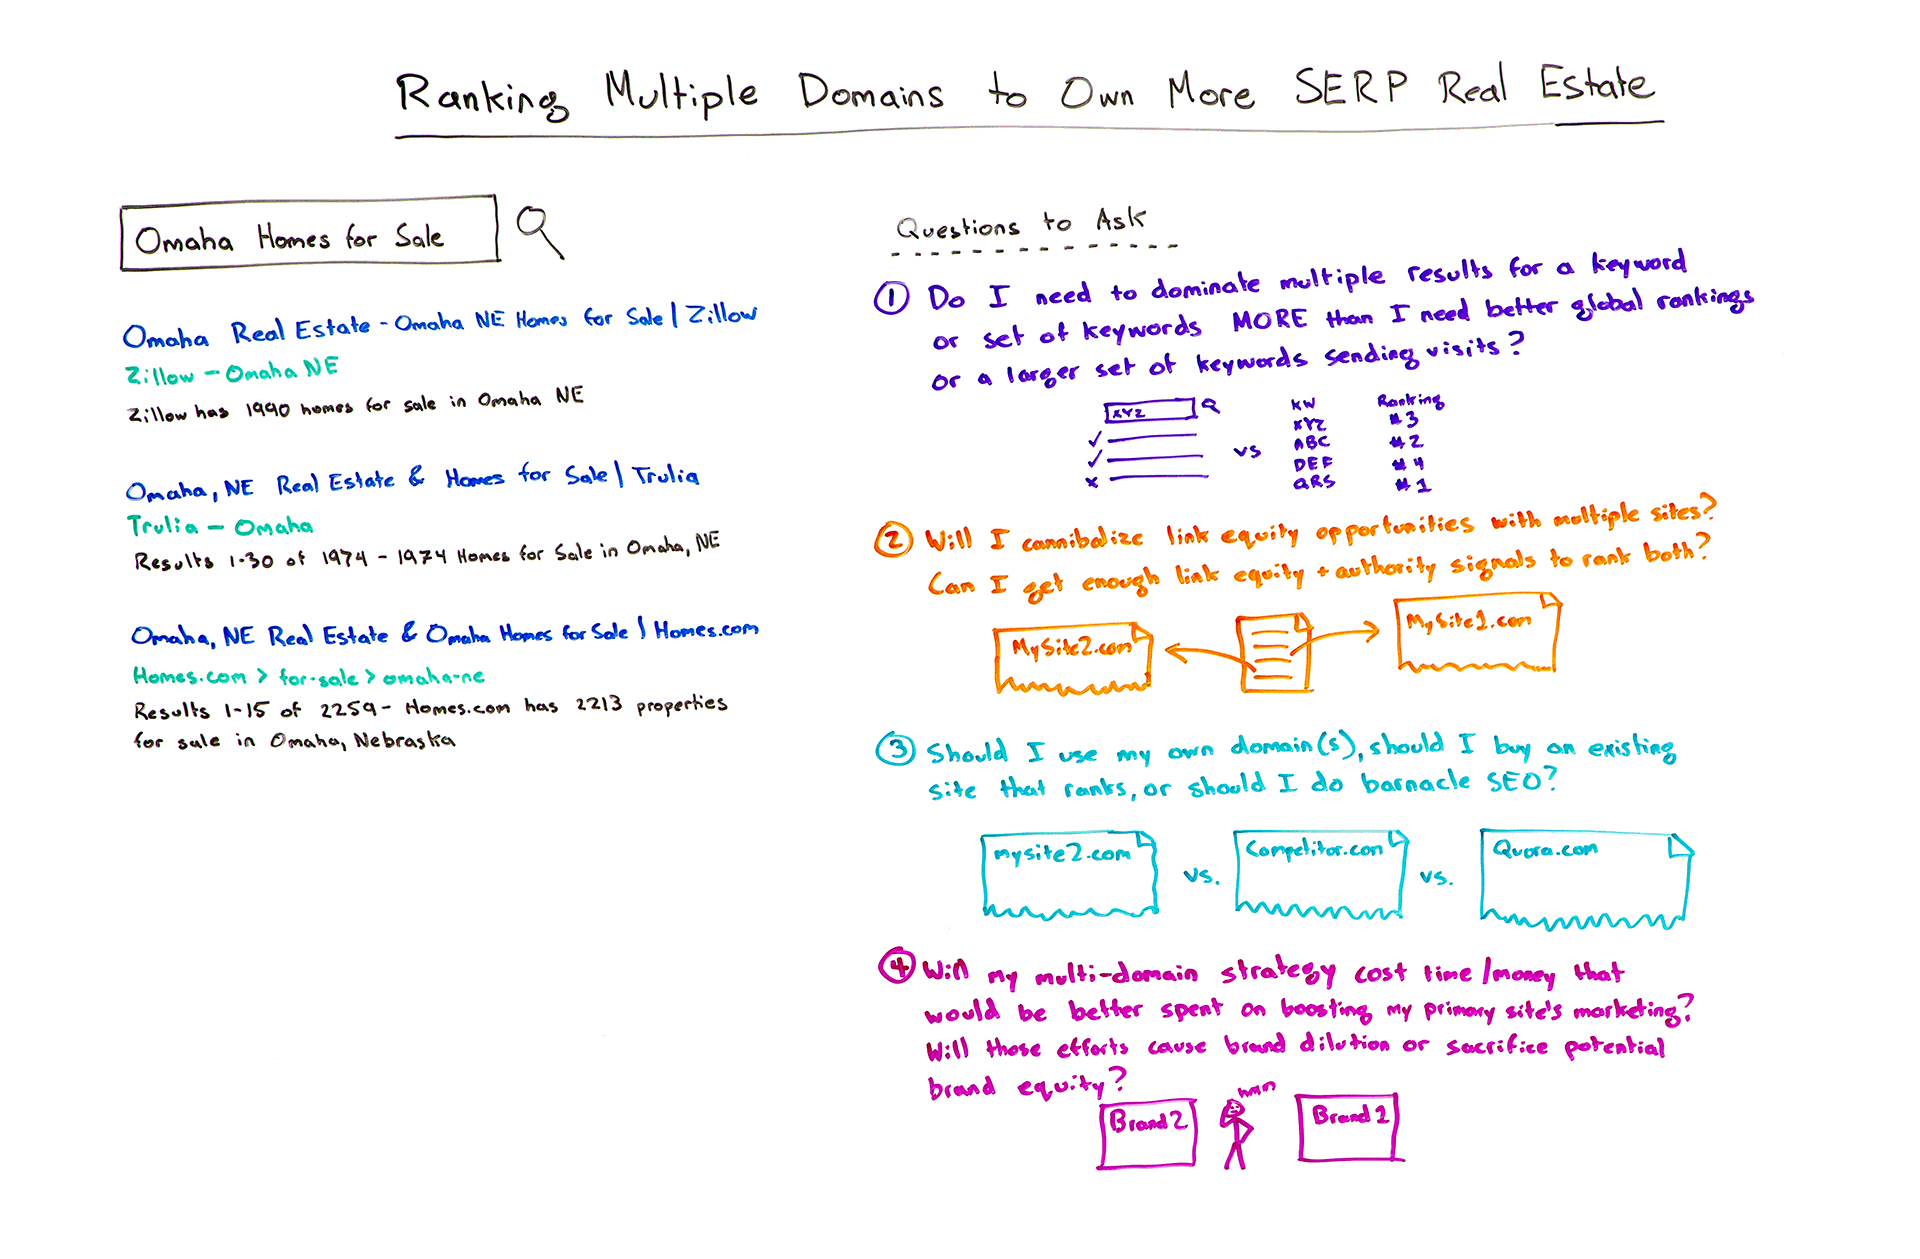 Ranking Multiple Domains to Own More SERP Real Estate
Omaha Homes for Sale
Omaha Real Estate - Omaha NE Homes for Sale | Zillow
Zillow – Omaha NE
Zillow has 1990 homes for sale in Omaha NE
Omaha, NE Real Estate & Homes for Sale | Trulia
Trulia – Omaha
Results 1-30 of 1974 - 1974 Homes for Sale in Omaha, NE
Omaha, NE Real Estate & Omaha Homes for Sale | Homes.com
Homes.com > for-sale > omaha-ne
Results 1-15 of 2259 - Homes.com has 2213 properties
for sale in Omaha, Nebraska
Questions to Ask
① Do I need to dominate multiple results for a keyword
or set of keywords MORE than I need better global rankings
or a larger set of keywords sending visits?
XYZ
vs
KW Ranking
XYZ #3
ABC #2
DEF #4
QRS #1
② Will I cannibalize link equity opportunities with multiple sites?
Can I get enough link equity + authority signals to rank both?
MySite2.com
MySite1.com
③ Should I use my own domain(s), should I buy an existing
site that ranks, or should I do barnacle SEO?
mysite2.com vs. Competitor.com vs. Quora.com
④ Will my multi-domain strategy cost time/money that
would be better spent on boosting my primary site's marketing?
Will those efforts cause brand dilution or sacrifice potential
brand equity?
Brand2
Brand1